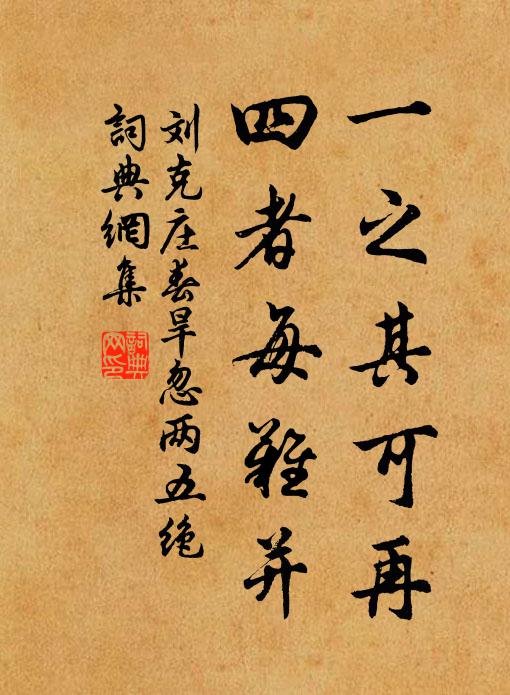 一之其可再
四者每难并
刘克庄春旱忽两五绝
詞典網集
詞典
网印